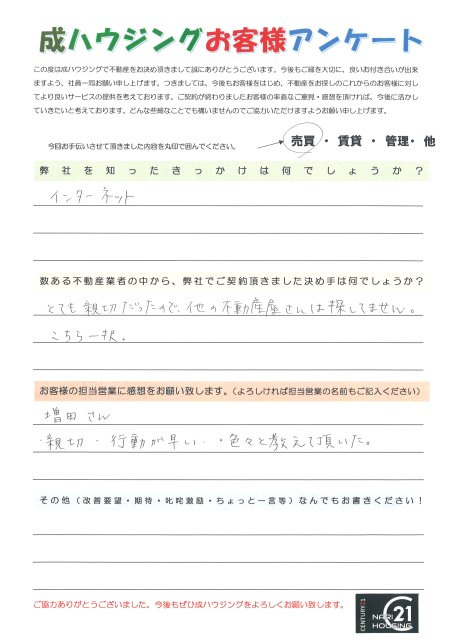 成ハウジングお客様アンケート
この度は成ハウジングで不動産をお決め頂きまして誠にありがとうございます。今後もご縁を大切に、良いお付き合いが出来
ますよう、社員一同お願い申し上げます。つきましては、今後もお客様をはじめ、不動産をお探しのこれからのお客様に対し
てより良いサービスの提供を考えております。ご契約が終わりましたお客様の率直なご意見・感想を頂ければ、今後に活かし
ていきたいと考えております。どんな些細なことでも構いませんのでご協力いただけますようお願い申し上げます。
今回お手伝いさせて頂きました内容を丸印で囲んでください。
売買・賃貸・管理・他
弊社を知ったきっかけは何でしょうか？
インターネット
数ある不動産業者の中から、弊社でご契約頂きました決め手は何でしょうか？
とても親切だったので、他の不動産屋さんは探してません。
こちら一択。
お客様の担当営業に感想をお願い致します。（よろしければ担当営業の名前もご記入ください）
増田さん
・親切・行動が早い・色々と教えて頂いた。
その他（改善要望・期待・叱咤激励・ちょっと一言等）なんでもお書きください！
ご協力ありがとうございました。今後もぜひ成ハウジングをよろしくお願い致します。
CENTURY21
21
NARI
HOUSING